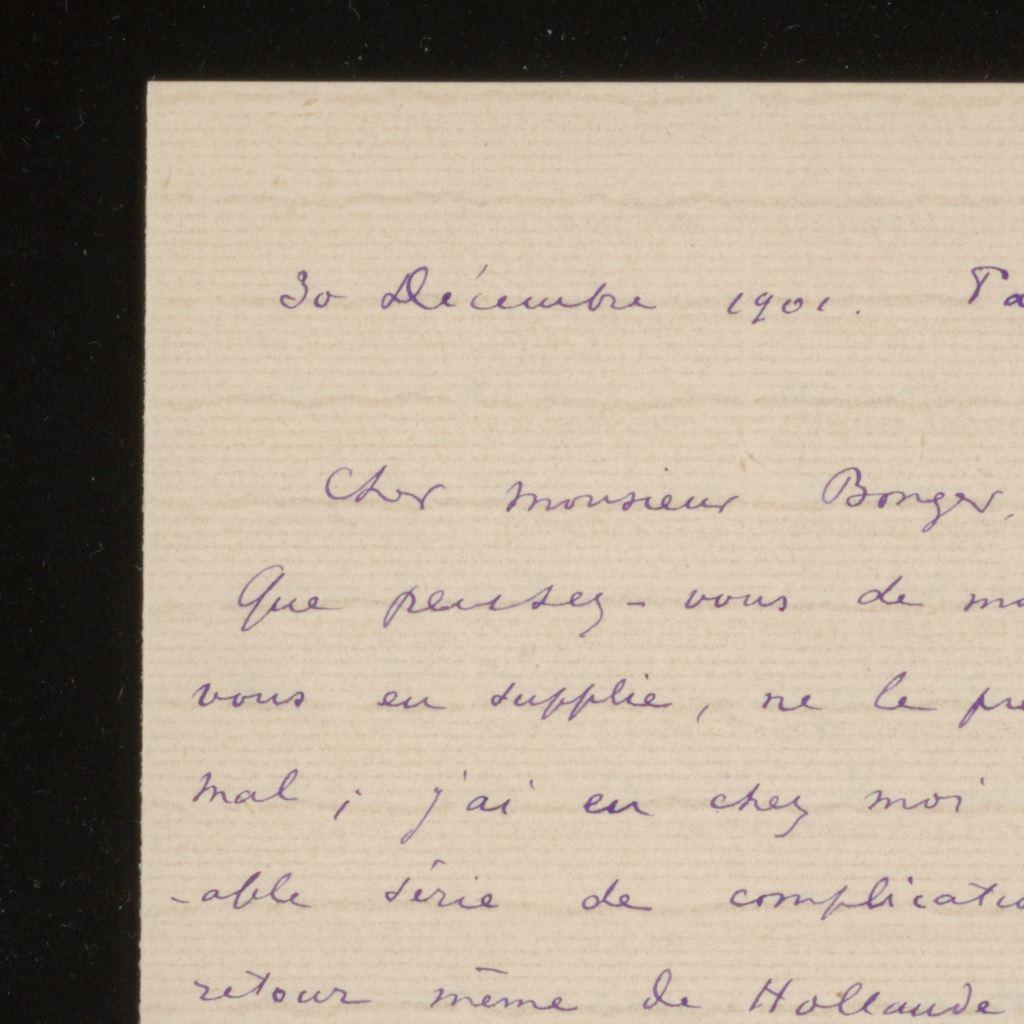 30 Décembre 1901. Pa
Cher monsieur Bonger,
Que pensez-vous de mo
vous en supplie, ne le pre
mal ; j'ai eu chez moi
-able série de complicatio
retour même de Hollande